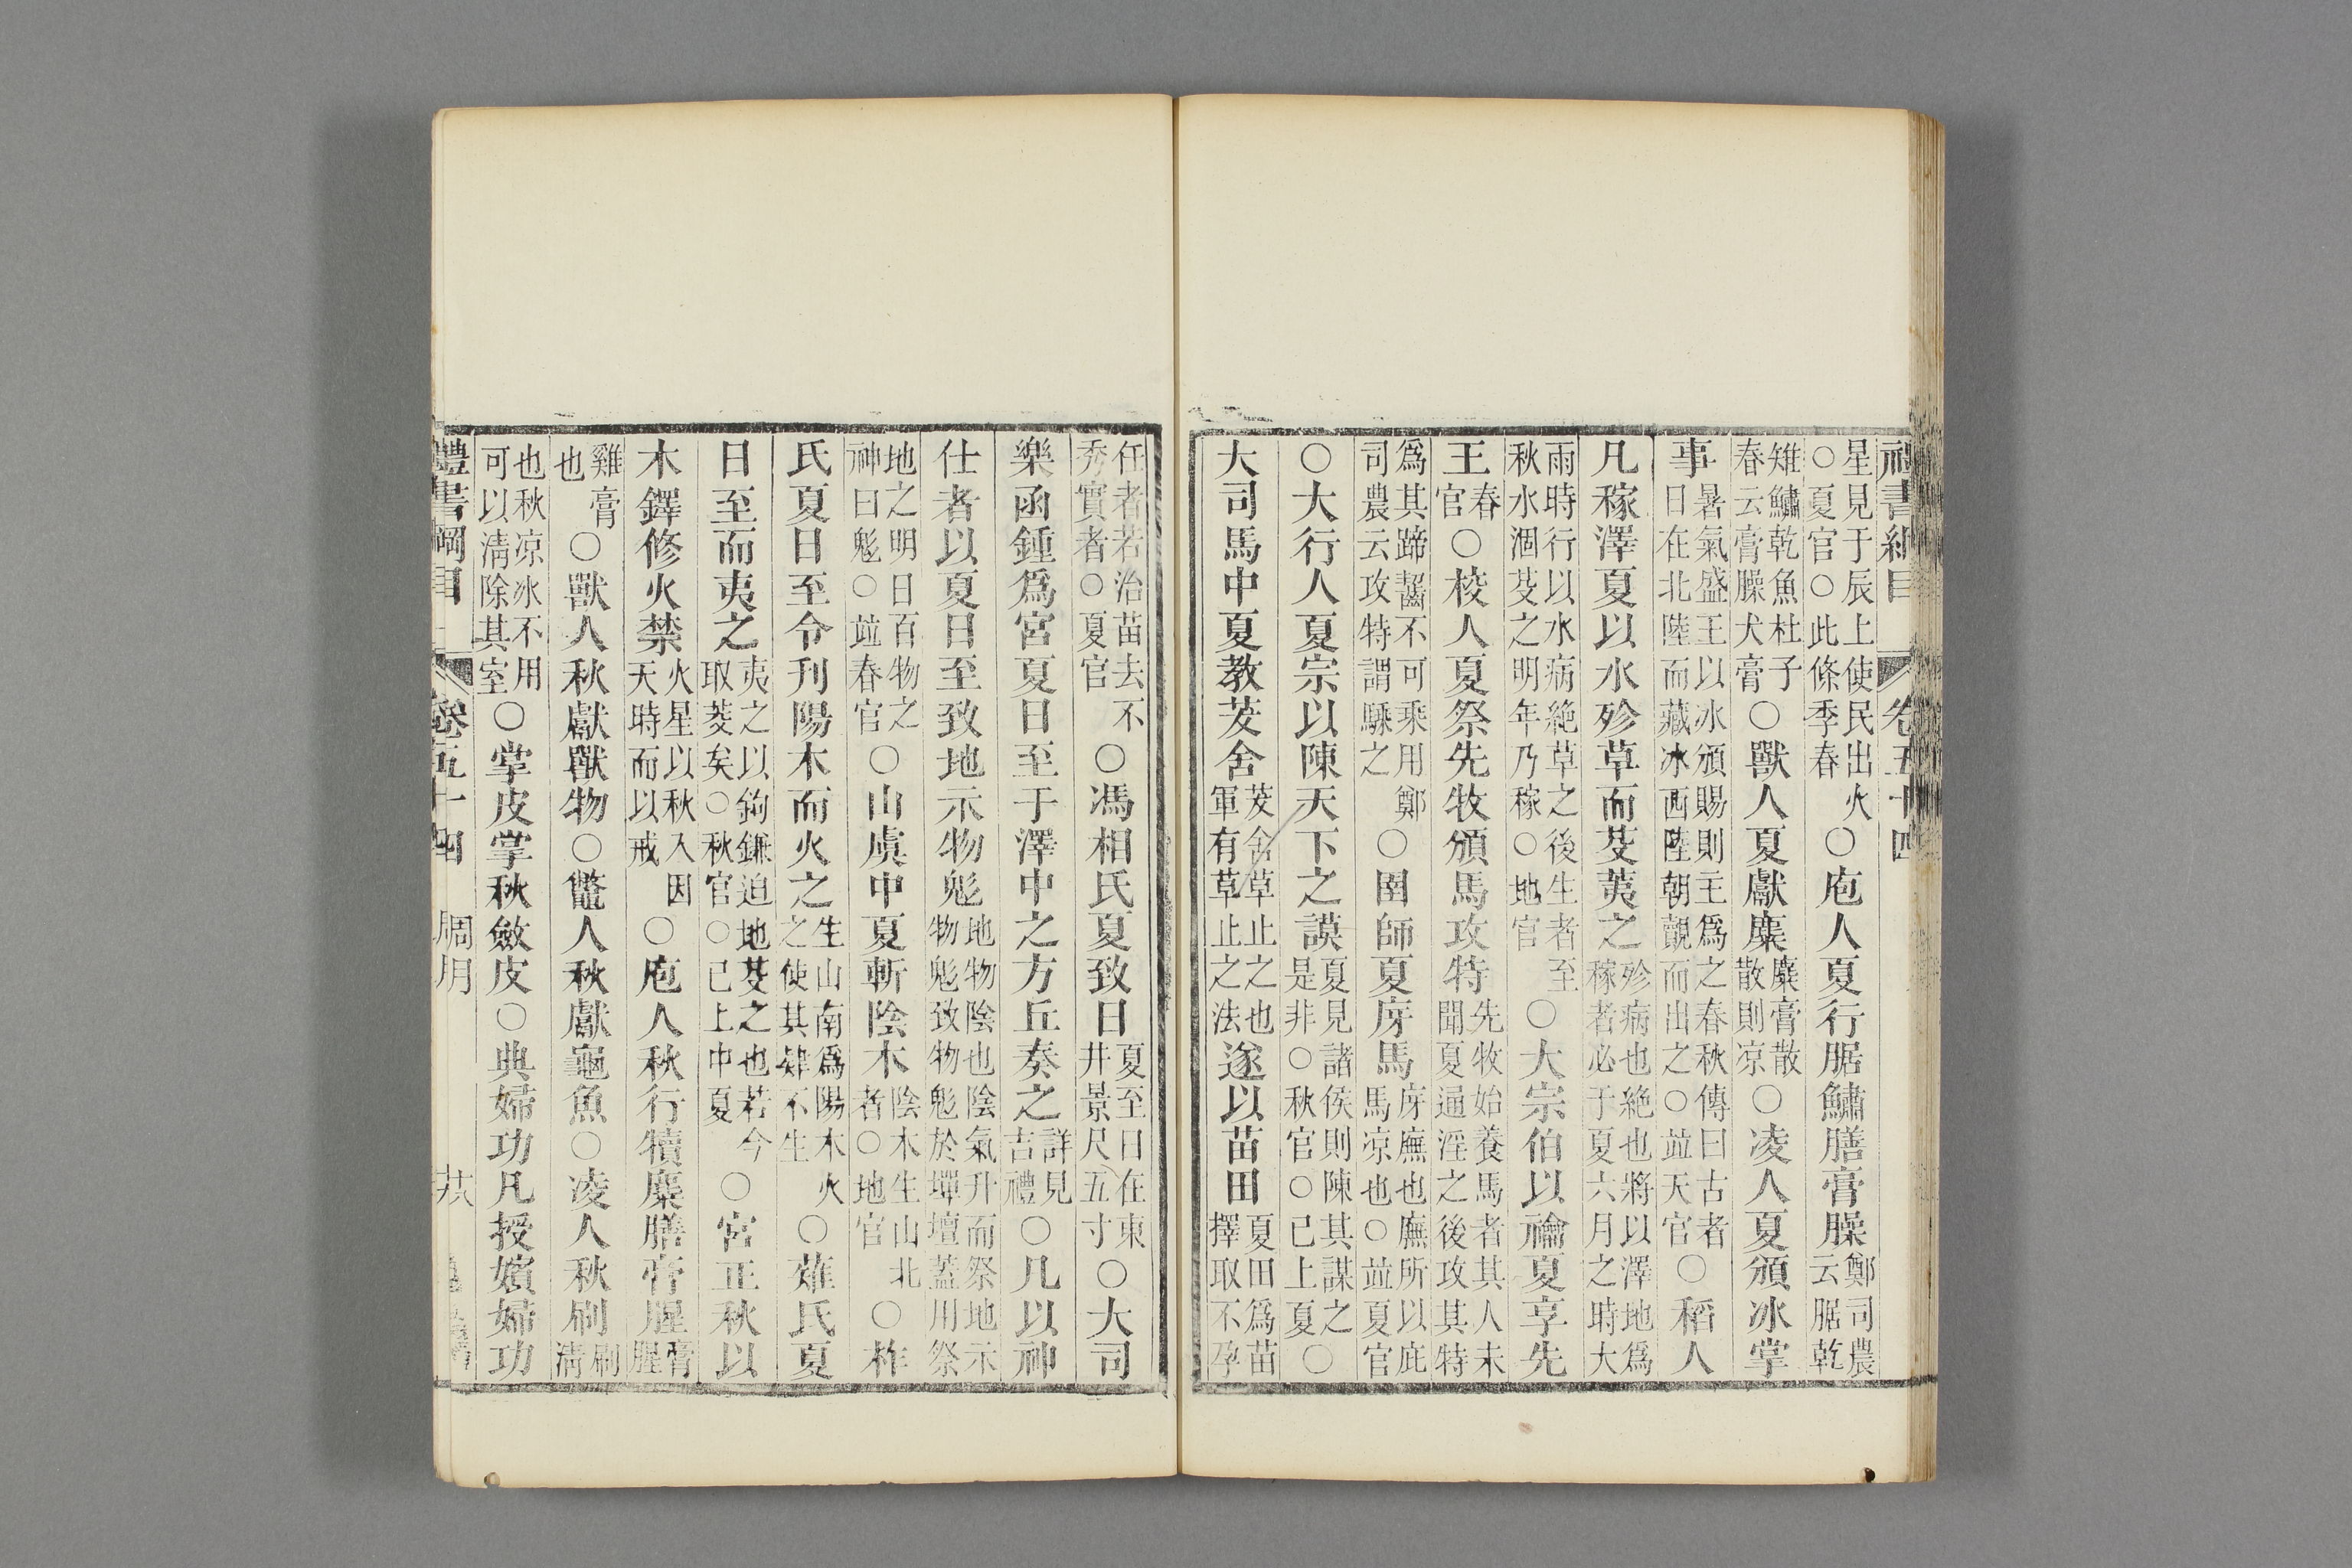 禮書綱目 卷五十四
星見于辰上使民出火○夏官○此條季春○庖人夏行腒鱐膳膏臊鄭司農云腒乾
雉鱐乾魚杜子春云膏臊犬膏○獸人夏獻麋麋膏散散則凉○凌人夏頒冰掌
事暑氣盛王以冰頒賜則主爲之春秋傳曰古者日在北陸而藏冰西陸朝覿而出之○竝天官○稻人
凡稼澤夏以水殄草而芟荑之殄病也絶也將以澤地爲稼者必于夏六月之時大
雨時行以水病絶草之後生者至秋水涸芟之明年乃稼○地官○大宗伯以禴夏享先
王春官○校人夏祭先牧頒馬攻特先牧始養馬者其人未聞夏通淫之後攻其特
爲其蹄齧不可乘用鄭司農云攻特謂騬之○圉師夏庌馬庌廡也廡所以庇馬凉也○竝夏官
○大行人夏宗以陳天下之謨夏見諸侯則陳其謀之是非○秋官○已上夏○
大司馬中夏教茇舍茇舍草止之也軍有草止之法遂以苗田夏田爲苗擇取不孕
任者若治苗去不秀實者○夏官○馮相氏夏致日夏至日在東井景尺五寸○大司
樂函鍾爲宮夏日至于澤中之方丘奏之詳見吉禮○凡以神
仕者以夏日至致地示物鬽地物陰也陰氣升而祭地示物鬽致物鬽於墠壇蓋用祭
地之明日百物之神曰鬽○竝春官○山虞中夏斬陰木陰木生山北者○地官○柞
氏夏日至令刊陽木而火之生山南爲陽木火之使其肄不生○薙氏夏
日至而夷之夷之以鉤鎌迫地芟之也若今取茭矣○秋官○已上中夏○宮正秋以
木鐸修火禁火星以秋入因天時而以戒○庖人秋行犢麛膳膏腥膏腥
雞膏也○獸人秋獻獸物○鼈人秋獻龜魚○凌人秋刷刷清
也秋凉冰不用可以清除其室○掌皮掌秋斂皮○典婦功凡授嬪婦功
禮書綱目 卷五十四 周月